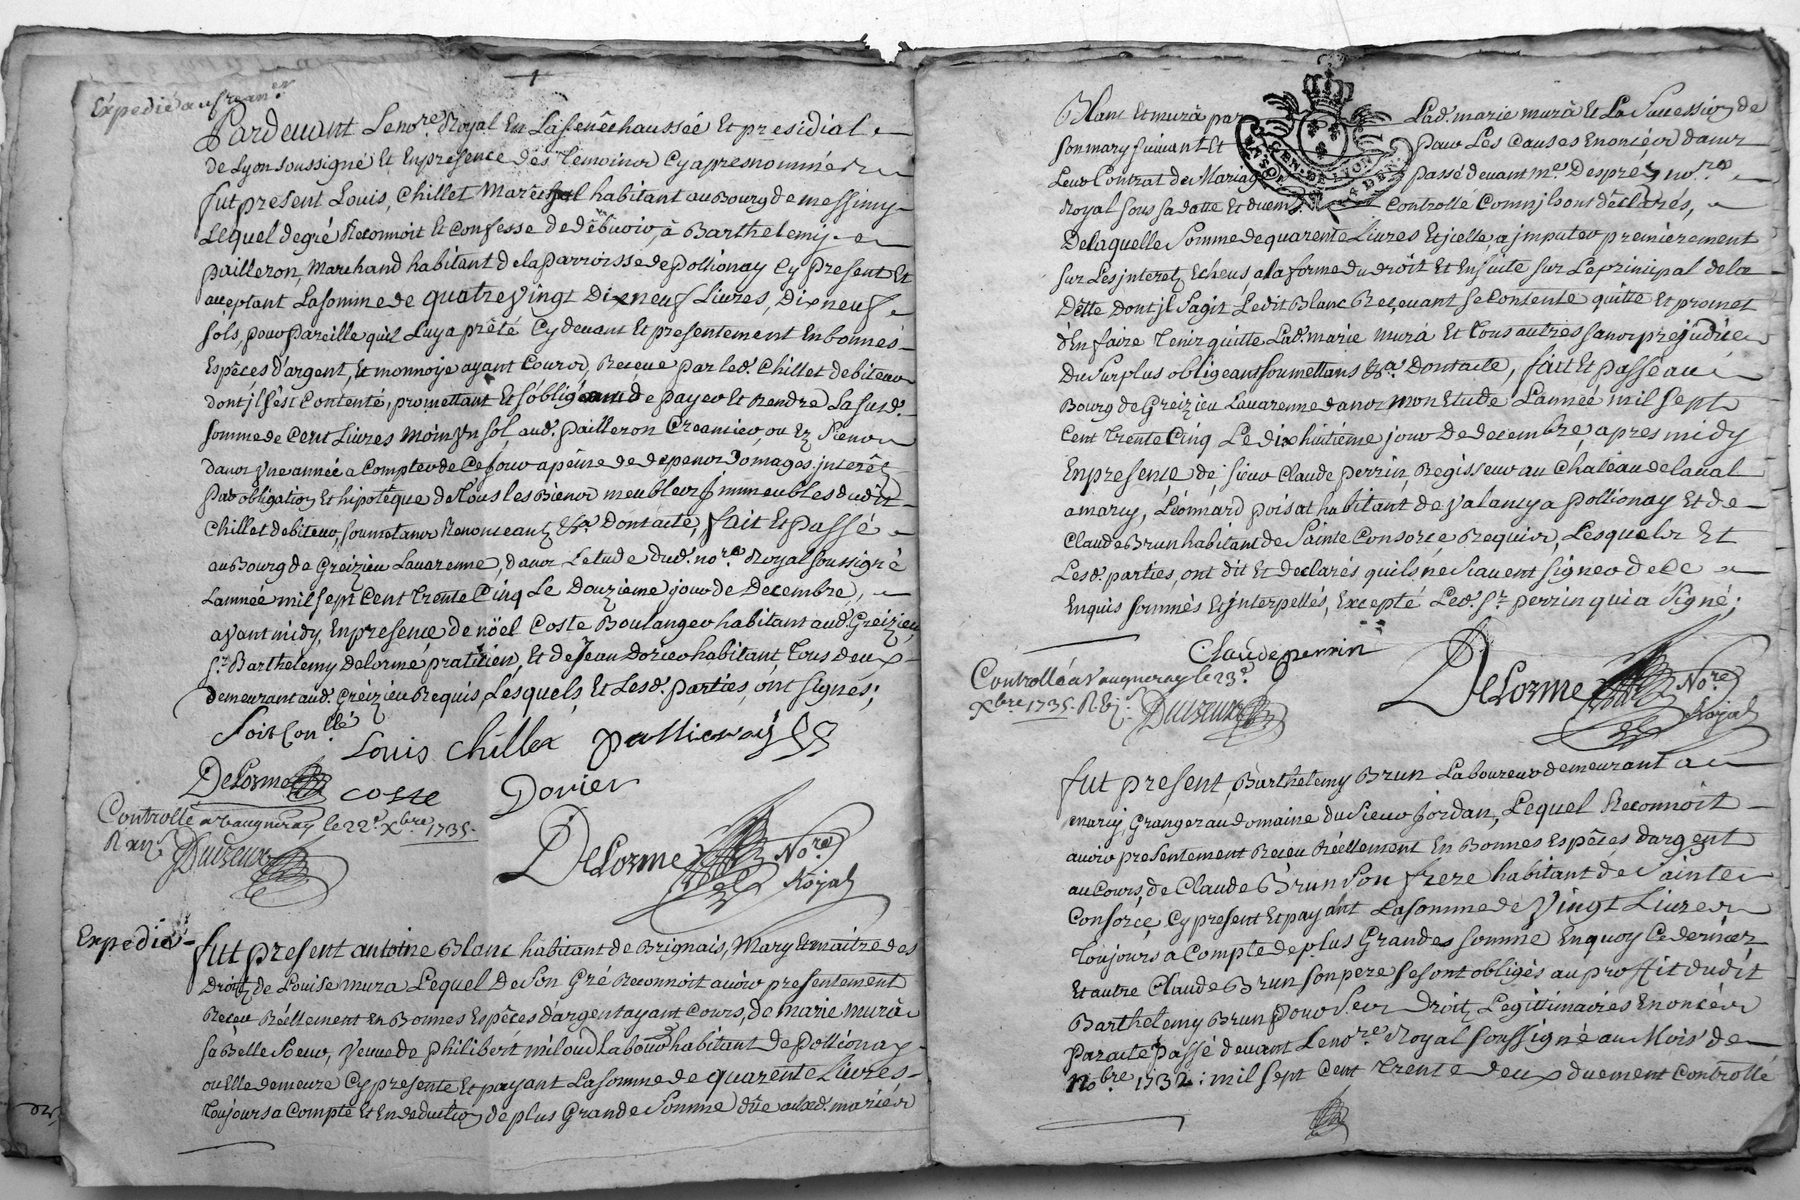 Expedié au creancer
Pardevant Le nore. Royal En La senêchaussée Et presidial
de Lyon soussigné Et En presence des temoins Cy apres nommés
fut present Louis Chillet Marêchal habitant au Bourg de messimy
Lequel de gré Reconnoit Et Confesse de debvoir, à Barthelemy
pailleron, Marchand habitant de la parroisse de pollionay Cy present Et
acceptant La somme de quatre Vingt Dix neuf Livres, Dix neuf
sols, pour pareille qu'il Luy a prêté Cy devant Et presentement En bonnes
Espêces d'argent, Et monnoye ayant Cours, Receue par led. Chillet debiteur
dont jl s'est Contenté, promettant Et s'obligeant de payer Et Rendre La susd.
somme de Cent Livres Moins Vn sol, aud. pailleron Creancier, ou Ez Siens
dans Vne année a Compter de Ce jour a pêine de depens Domages jnterêts
par obligation Et hipotêque de Tous les Biens meubles Jmmeubles dudit
Chillet debiteur, soumetans Renonceant &a. Dont acte, fait Et passé
au Bourg de Greizieu Lavarenne, dans L'etude dud. nore. Royal soussigné
L'année mil sept Cent Trente Cinq Le Douzième jour de Decembre,
avant midy, En presence de nöel Coste Boulanger habitant aud. Greizieu,
Sr. Barthelemy delorme pratitien, Et de Jean Dorier habitant, Tous deux
demeurant aud. Greizieu Requis, Lesquels, Et Lesd. parties, ont signés;
Soit Conllé
Louis chillet pallieron
DeLorme coste Dorier
Controllé a Vaugneray le 22e. Xbre. 1735.
DeLorme Nore Royal
Expedié
fut present antoine Blanc habitant de Brignais, Mary Et maitre des
Droits de Louise mura Lequel De son Gré Reconnoit avoir presentement
Receu Réellement En Bonnes Espêces d'argent ayant Cours, de marie mura
sa Belle Soeur, Veuve de philibert miloud Labour habitant de pollionay
ou Elle demeure Cy presente Et payant La somme de quarente Livres
Toujours a Compte Et En deduction de plus Grande Somme düe a lad. marie
Blanc Et mura par Lad. marie mura Et La Succession de
son mary suivant Et pour Les Causes Enoncées dans
Leur Contrat de Mariage passé devant me. Despréz nore.
Royal sous sa datte Et duem. Controllé Comm' jls ont dêclarés,
De laquelle Somme de quarente Livres Et jcelle, a jmputer premièrement
sur Les jnterets Echeus, a la forme du droit Et Ensuite sur Le prinipal de la
Dette dont jl s'agit Ledit Blanc Reçevant se Contente quitte Et promet
d'En faire Tenir quitte Lad. marie mura Et Tous autres sans prejudice
Du surplus obligeant soumettans &a. Dont acte, fait Et passé au
Bourg de Greizieu Lavarenne dans mon Etude L'année mil sept
Cent Trente Cinq Le dix huitième jour De decembre, apres midy
En presense de sieur Claude perrin, Regisseur au Château de laval
a marcy, Léonnard poisat habitant de Valency a pollionay Et de
Claude Brun habitant de Sainte Consorce Requis, Lesquels Et
Lesd. parties, ont dit Et declarés qu'ils ne scavent signer de ce
Enquis sommés Et jnterpellés, Excepté Led. Sr. perrin qui a Signé;
Claude perrin
Controllé a Vaugneray le 23e.
Xbre 1735.
DeLorme Nore Royal
fut present, Barthelemy Brun Laboureur demeurant au
marcy, Granger au domaine du Sieur Jordan, Lequel Reconnoit
avoir presentement Reçeu Réellement En Bonnes Espêces d'argent
au Cours, de Claude Brun Son frere habitant de Sainte
Consorce, Cy present Et payant La somme de Vingt Livres
Toujours a Compte de plus Grande somme En quoy Ce dernier
Et autre Claude Brun son pere se sont obligés au proffit dudit
Barthelemy Brun pour Ses Droits Legittimaires Enoncés
par acte passé devant Le nore. Royal soussigné au Mois de
nobre. 1732: mil sept Cent Trente deux duement Controllé